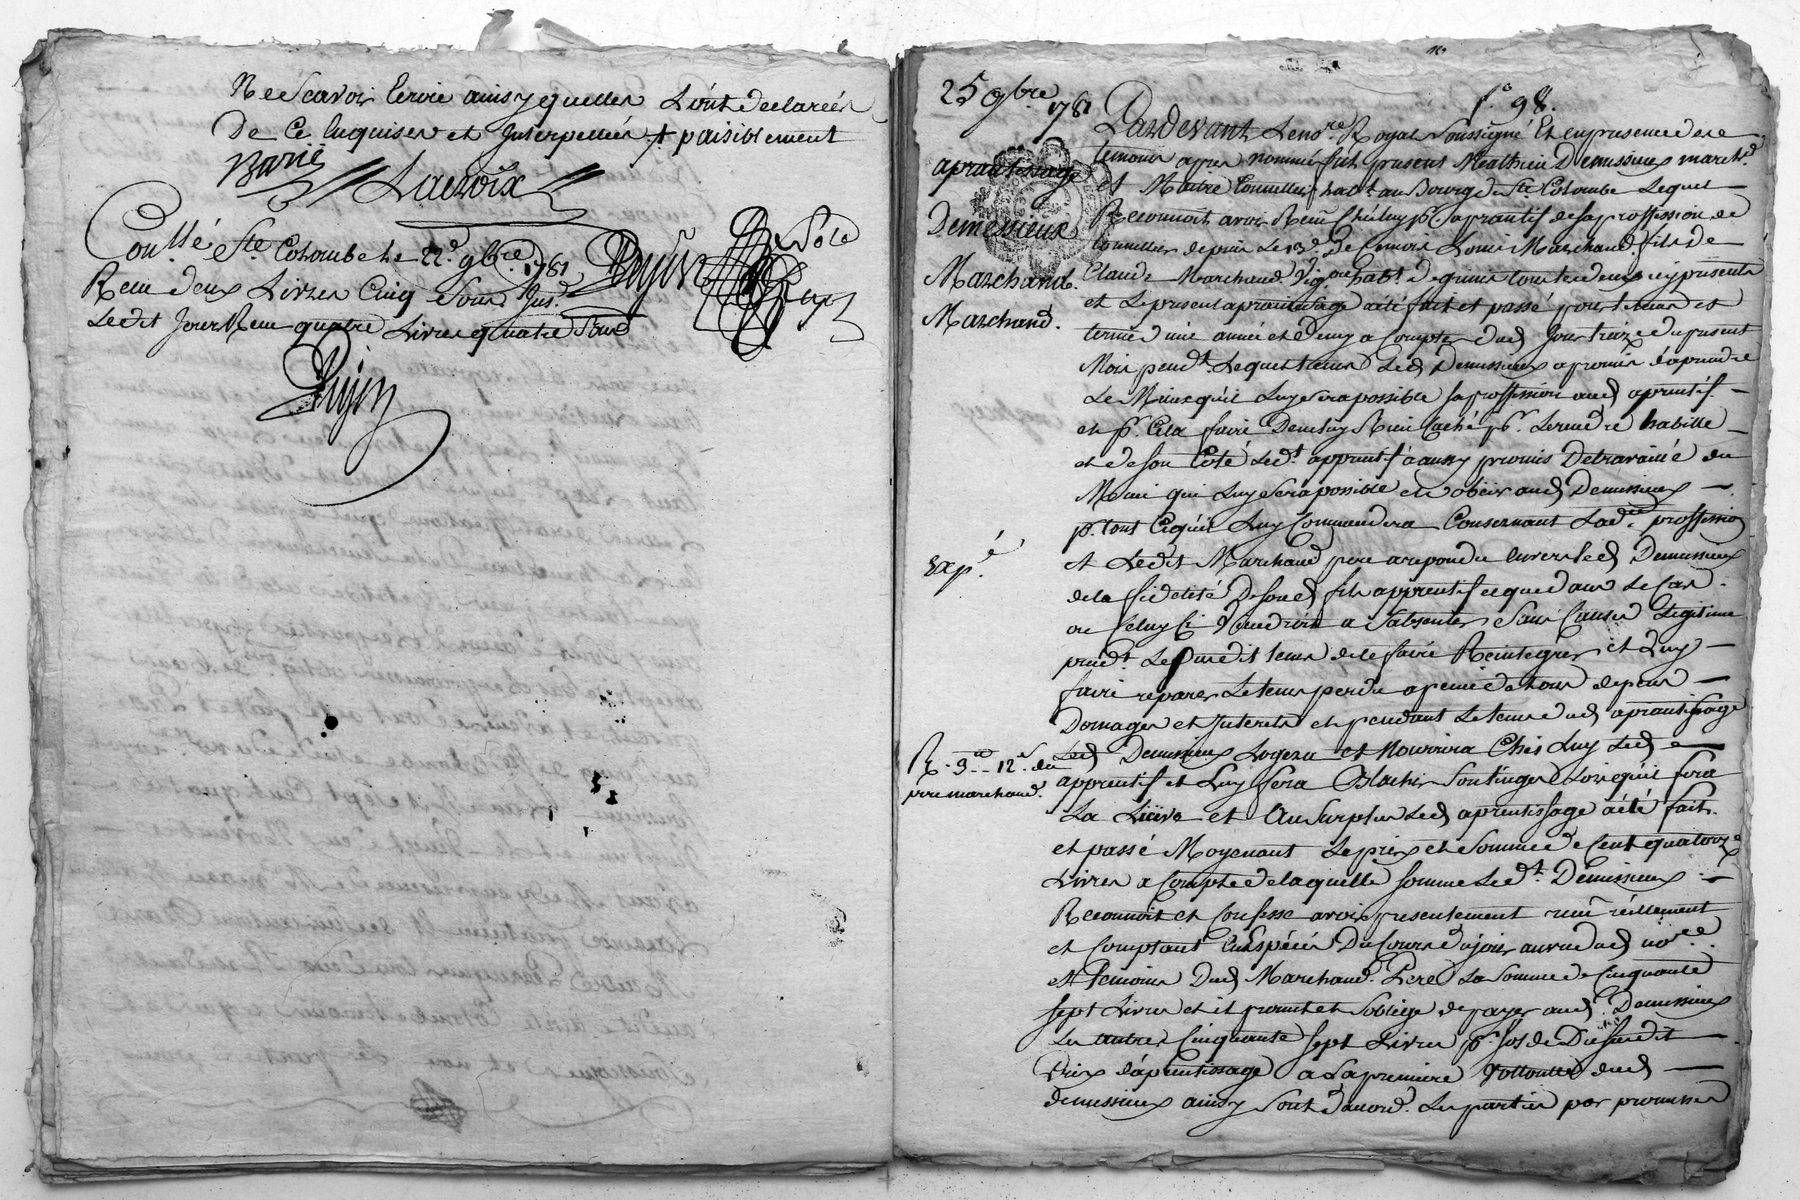 Ne Scavoir Ecrire ainsy quelles L'ont declarées
De Ce Enquises et Interpellées + paisiblement
Lacroix
Con.llé Ste. Colombe le 22.e 9bre. 1781
Receu deux Livres Cinq Sous
Ledit Jour Receu quatre Livres quatre Sous
Pujin
25 9bre. 1781
aprantissage
Demessieux
Marchand.
Marchand.
Exp.é
R. 3.# 12.s du
pere marchand.
f.o 98.
Pardevant Le no.re Royal Soussigné Et en presence des
temoins apres nommés fut present Mathieu Demessieux march.d
et Maitre tonnellier habt. au Bourg de Ste Colombe Lequel
Reconnoit avoir Receu Chés luy p.r aprantif de sa proffession de
tonnellier depuis Le 13.e De Ce mois Louis Marchand. fils de
Claude Marchand. Vig.on habt. tous les deux icy presents
et Le present aprantissage a eté fait et passé pour le tems et
terme d'une année et demy a Compter dud. Jour treize du present
Mois pend.t Lequel tems Led. Demessieux a promis d'aprendre
Le Mieux qu'il Luy Sera possible sa proffession aud. aprentif
et p.r Cela faire De ne luy Rien Caché p.r Le rendre habille
et de son Coté Led.t apprentif a aussy promis De travaillé du
Mieux qui Luy Sera possible et d'obeir aud. Demessieux
p.r tout Cequ'il Luy Commandera Consernant Lad.e proffession
et Ledit Marchand pere a repondu envers led. Demessieux
de la fidelité De son d. fils apprentif et que dans Le Cas
ou Celuy Ci Viendroit a S'absenter Sans Causes Legitime
pend.t Le Susdit tems de le faire Reintegrer et Luy
faire reparer Le tems perdu a peine de tous depens
Domages et Interets et pendant Le tems dud. aprantissage
Led. Demessieux Logera et Nourrira Chés Luy Led.
apprentif et Luy fera Blachir Son linge Lorsqu'il fera
La Licive et Au Surplus Led. aprentissage a eté fait
et passé Moyenant Le prix et Somme de Cent quatorze
Livres a Compte de laquelle somme Led.t Demessieux
Reconnoit et Confesse avoir presentement receu réellement
et Comptant En Espéces Du Cours de ce jour au vu dud. no.re
et Temoins Dud. Marchand. Pere La Somme de Cinquante
sept Livres et il promet et S'oblige de payer aud. Demessieux
Les autres Cinquante Sept Livres p.r Sol de Du Susdit
Prix d'aprentissage a La premiere Vollonté dud.
demessieux ainsy Sont d'accord. Les parties par promesses